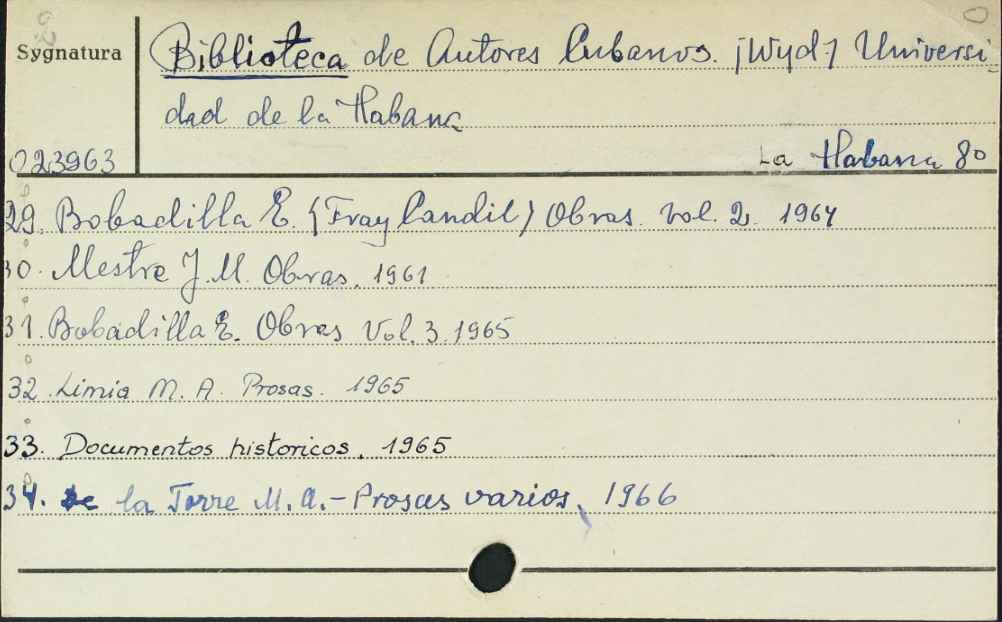 Sygnatura
Biblioteca de Autores Cubanos. [Wyd.] Universi-
dad de la Habana
023963
La Habana 8º
29. Bobadilla E. (Fray Candil) Obras. Vol. 2. 1964
30. Mestre J. M. Obras. 1961
31. Bobadilla E. Obras Vol. 3. 1965
32. Limia M. A. Prosas. 1965
33. Documentos historicos. 1965
34. de la Torre M. A. - Prosas varios, 1966